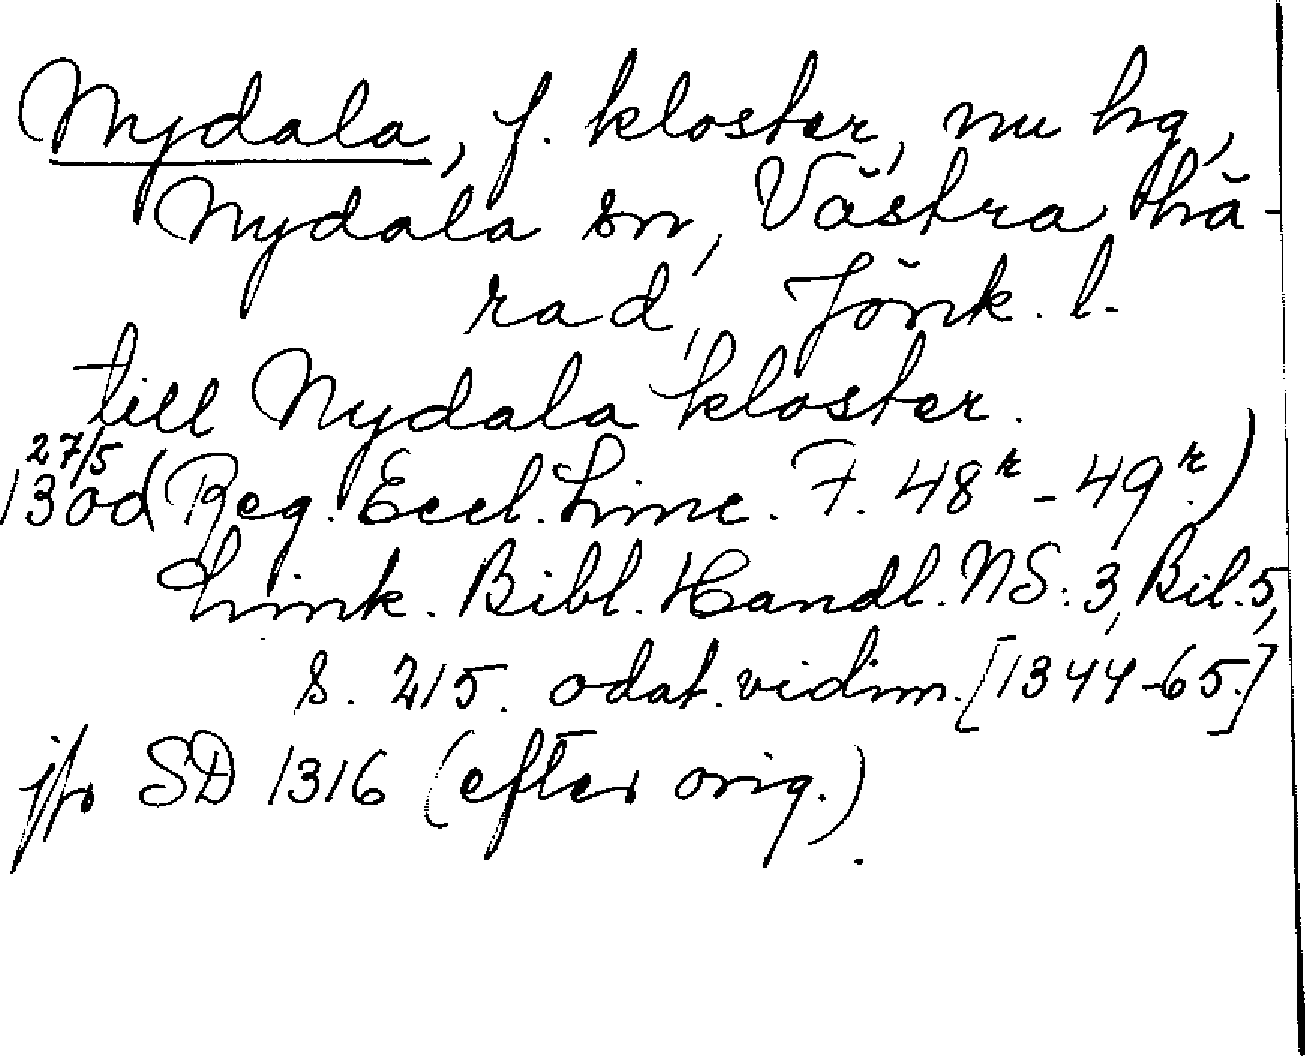 Nydala, f. kloster, nu hg,
Nydala sn, Västra hä-
rad, Jönk. l.
till Nydala kloster.
27/5
130od (Reg. Eccl. Linc. F. 48r - 49r.)
Link. Bibl. Handl. NS. 3, Bil. 5,
s. 215. odat. vidim. [1344-65.]
jfr SD 1316 (efter orig.).